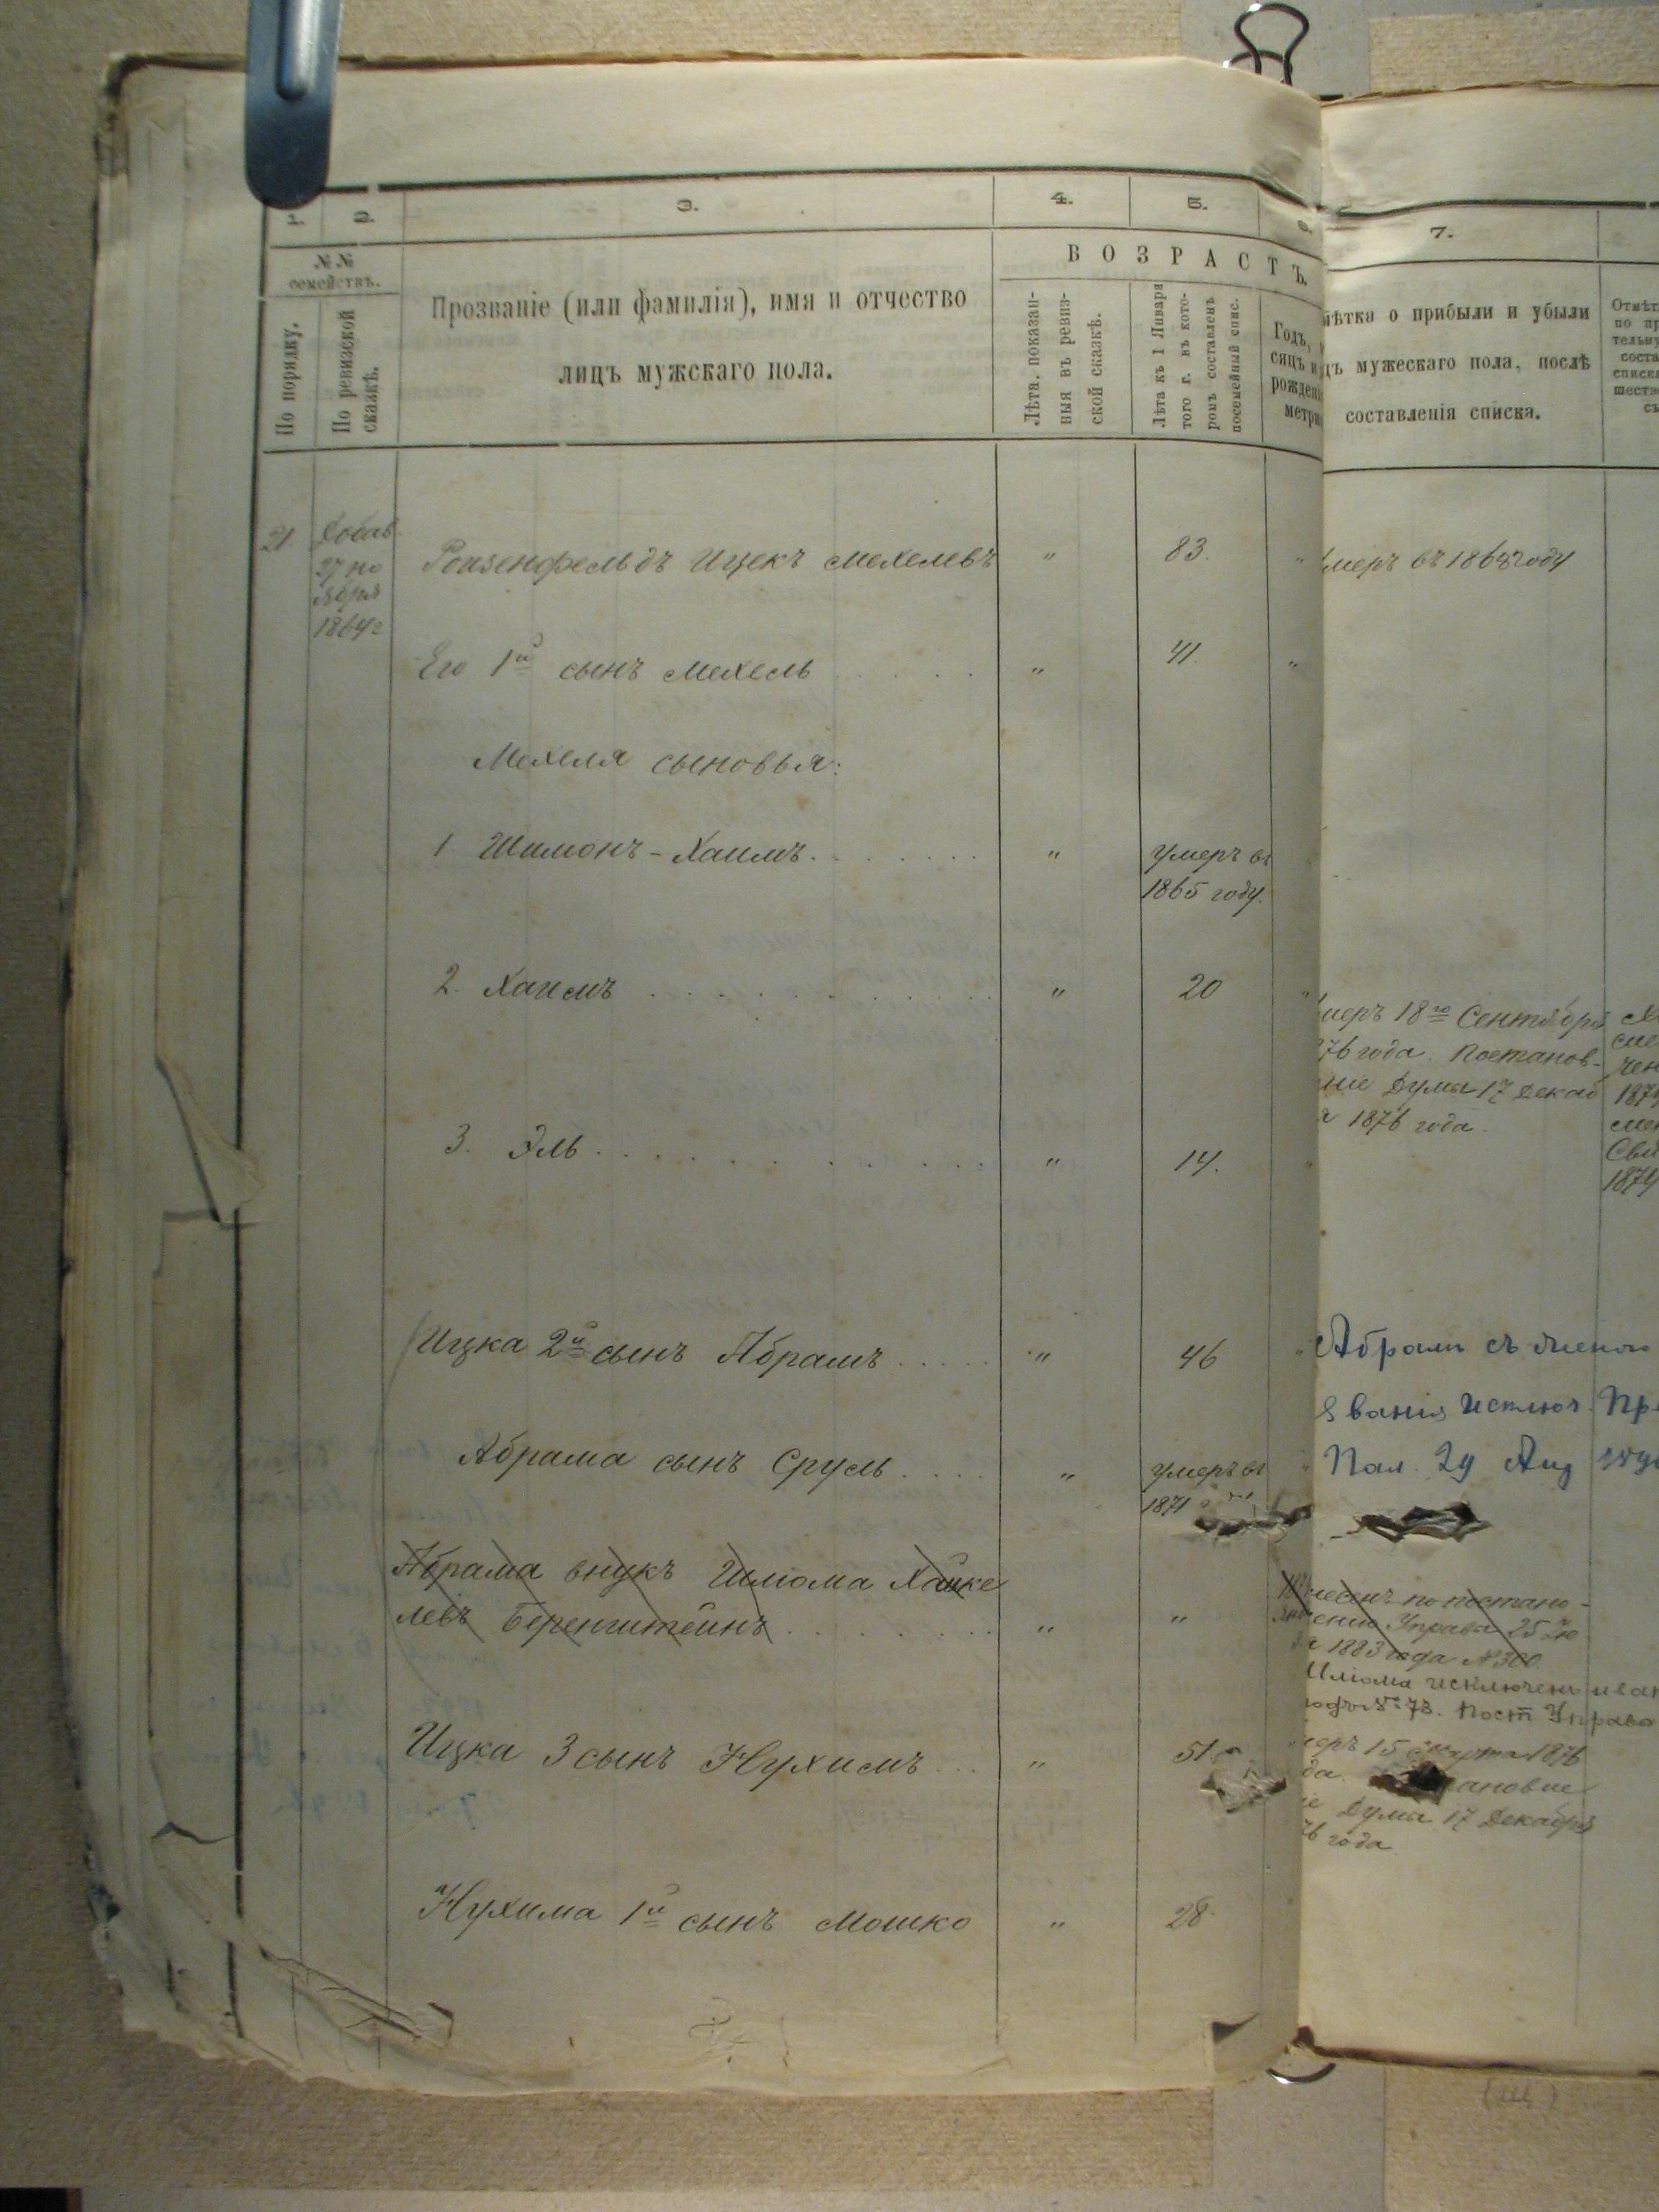 1.
2.
3.
4.
5.
6.
7.
№ №
семействъ.
По порядку.
По ревизской
сказкѣ.
Прозваніе (или фамилія), имя и отчество
лицъ мужскаго пола.
ВОЗРАСТЪ.
Лѣта, показан-
ныя въ ревиз-
ской сказкѣ.
Лѣта къ 1 Января
того г. въ кото-
ромъ составленъ
посемейный спис.
Годъ,
сяцъ и
рожден
метри
мѣтка о прибыли и убыли
цъ мужескаго пола, послѣ
составленія списка.
Отмѣт
по пр
тельну
соста
списка
шеств
21. Добав. 27 но ября 1864 г
Роизенфельдъ Ицекъ Мехелевъ " 83. " Умеръ въ 1868 году
Его 1й сынъ Мехель " 41. "
Мехеля сыновья:
1 Шимонъ-Хаимъ " умеръ въ
1865 году.
2. Хаимъ " 20 "
меръ 18го Сентября
76 года. Постанов-
ніе Думы 17 Декаб
я 1876 года.
1874
Сви
1874
3. Эль " 14. "
Ицка 2й сынъ Абрамъ " 46 "
Абрамъ съ
званія исключ. Пр
Пал. 29 Auг
Абрама сынъ Сруль " умеръ въ
1871
Абрама внукъ Шлiома Хайке
левъ Беренштейнъ " "
несенъ по постано-
вленію Управы 25 Ію
я 1883 года № 300
Шліома исключенъ
№ 73. Пост Управа
Ицка 3 сынъ Нухимъ " 51.
меръ 15 Марта 1876
да. ановле
іе Думы 17 Декабря
76 года
Нухима 1й сынъ Мошко " 28.